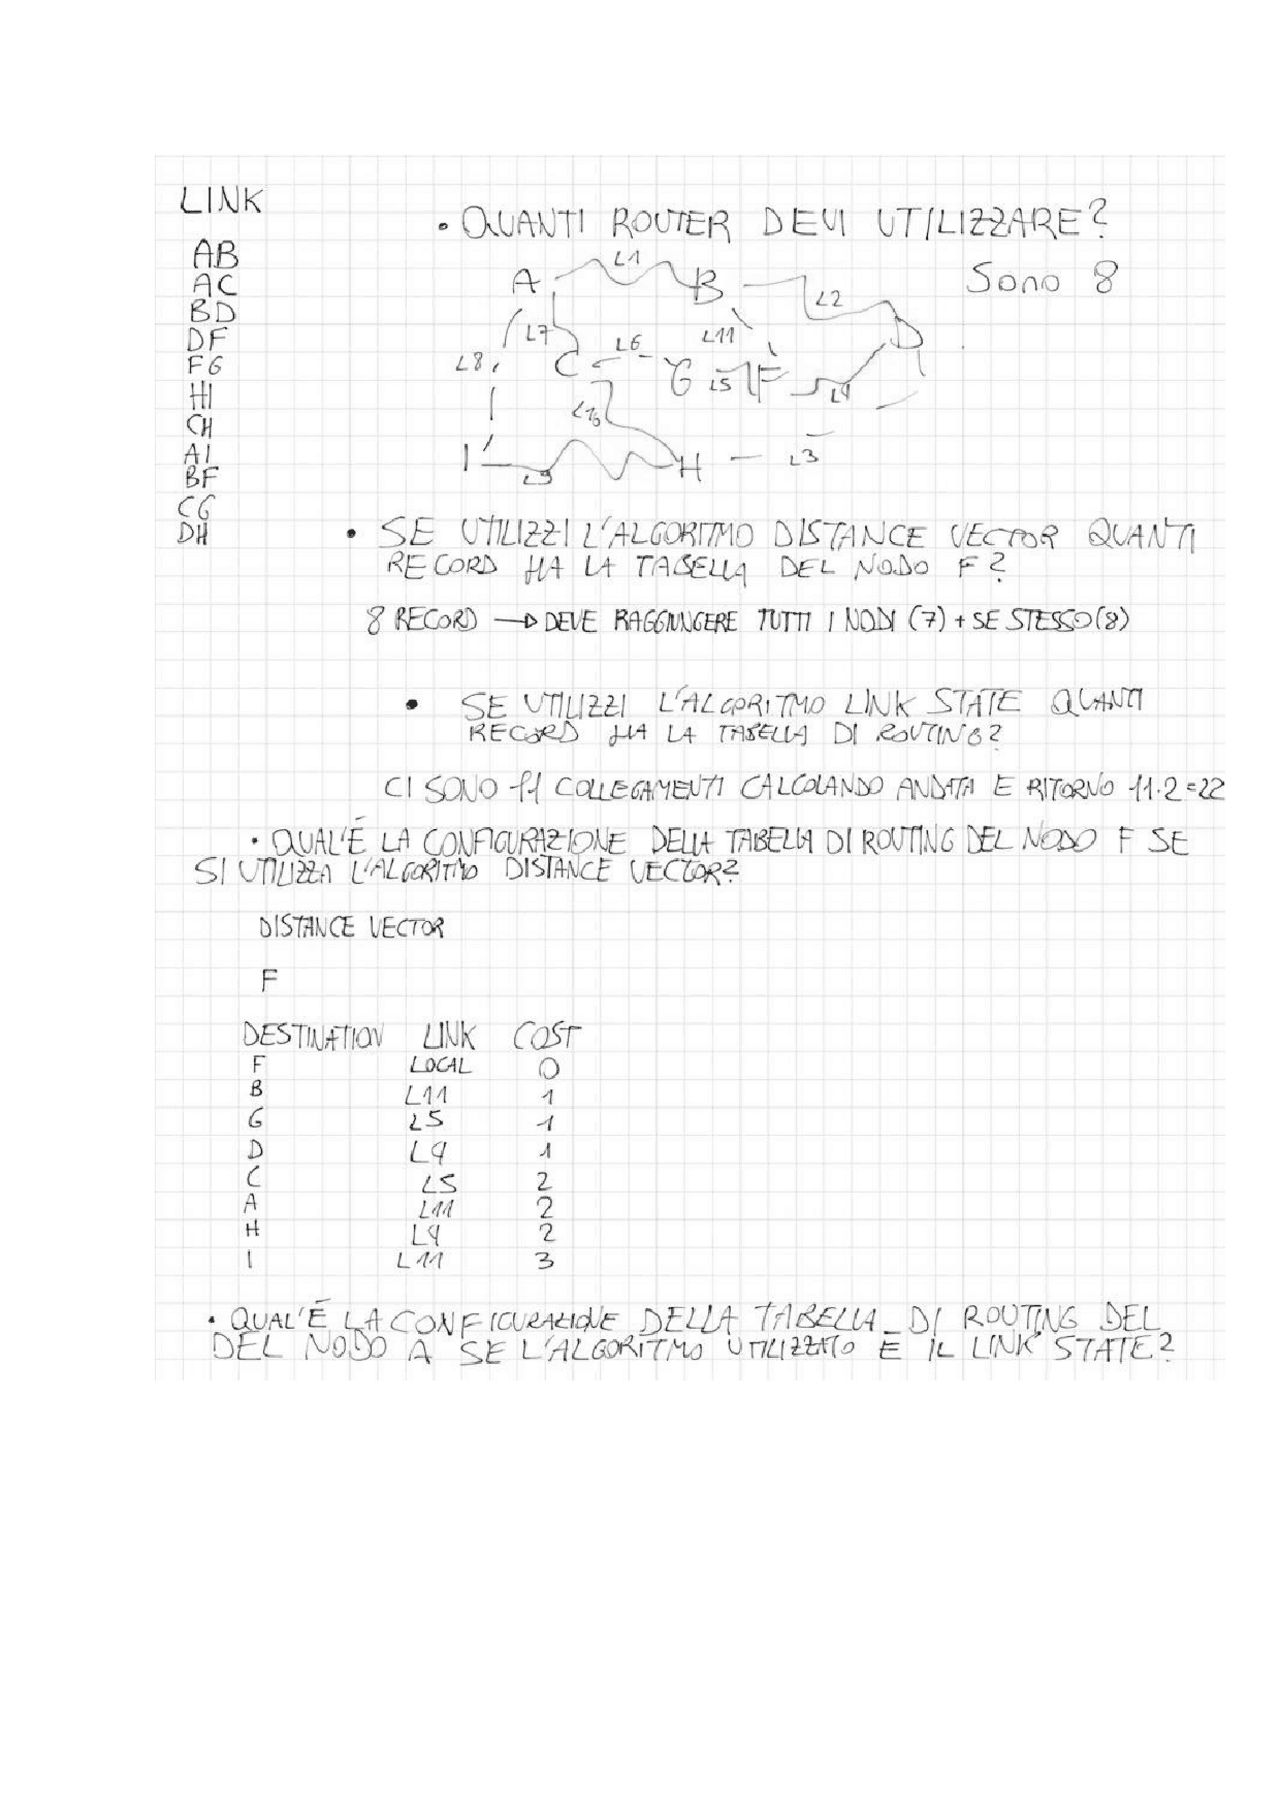 LINK
• QUANTI ROUTER DEVI UTILIZZARE?
Sono 8
AB
AC
BD
DF
FG
HI
CH
AI
BF
CG
DH
A L1 B L2 D
L8 L7 C L6 G L5 F L11 L4
L10
I L9 H L3
• SE UTILIZZI L'ALGORITMO DISTANCE VECTOR QUANTI
RECORD HA LA TABELLA DEL NODO F?
8 RECORD → DEVE RAGGIUNGERE TUTTI I NODI (7) + SE STESSO (8)
• SE UTILIZZI L'ALGORITMO LINK STATE QUANTI
RECORD HA LA TABELLA DI ROUTING?
CI SONO 11 COLLEGAMENTI CALCOLANDO ANDATA E RITORNO 11·2=22
• QUAL'È LA CONFIGURAZIONE DELLA TABELLA DI ROUTING DEL NODO F SE
SI UTILIZZA L'ALGORITMO DISTANCE VECTOR?
DISTANCE VECTOR
F
DESTINATION LINK COST
F LOCAL 0
B L11 1
G L5 1
D L4 1
C L5 2
A L11 2
H L4 2
I L11 3
• QUAL'È LA CONFIGURAZIONE DELLA TABELLA DI ROUTING DEL
DEL NODO A SE L'ALGORITMO UTILIZZATO È IL LINK STATE?